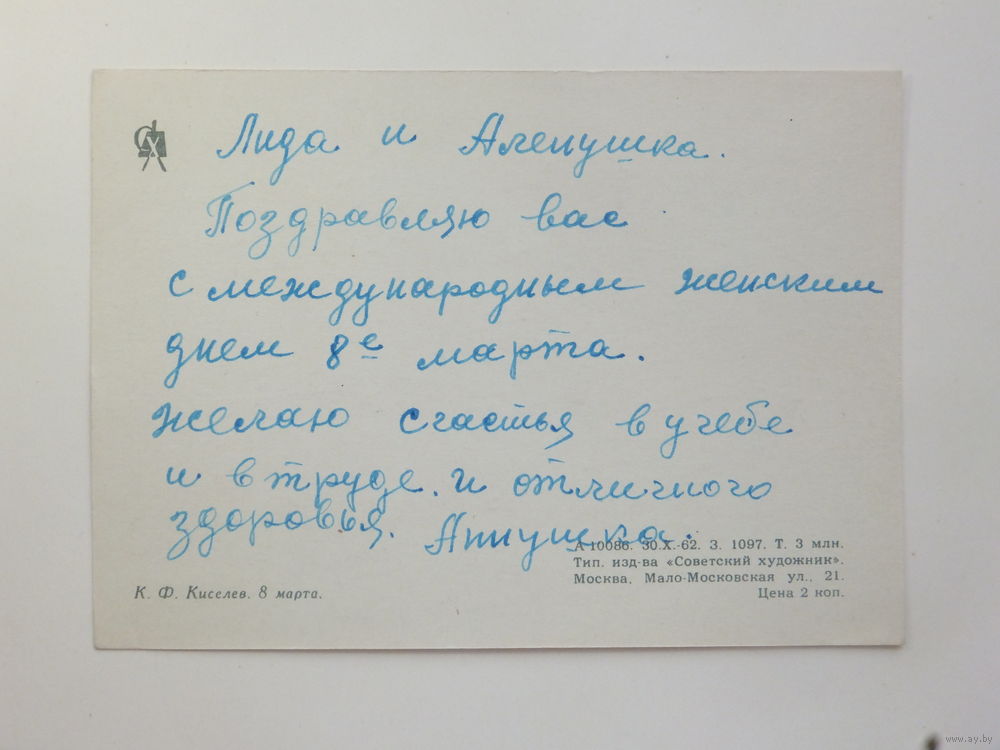 Лида и Аленушка.
Поздравляю вас
с международным женским
днем 8е марта.
желаю счастья в учебе
и в труде. и отличного
здоровья. Аннушка.
А-10086. 30.X.-62. З. 1097. Т. 3 млн.
Тип. изд-ва «Советский художник».
Москва, Мало-Московская ул., 21.
Цена 2 коп.
К. Ф. Киселев. 8 марта.
www.ay.by